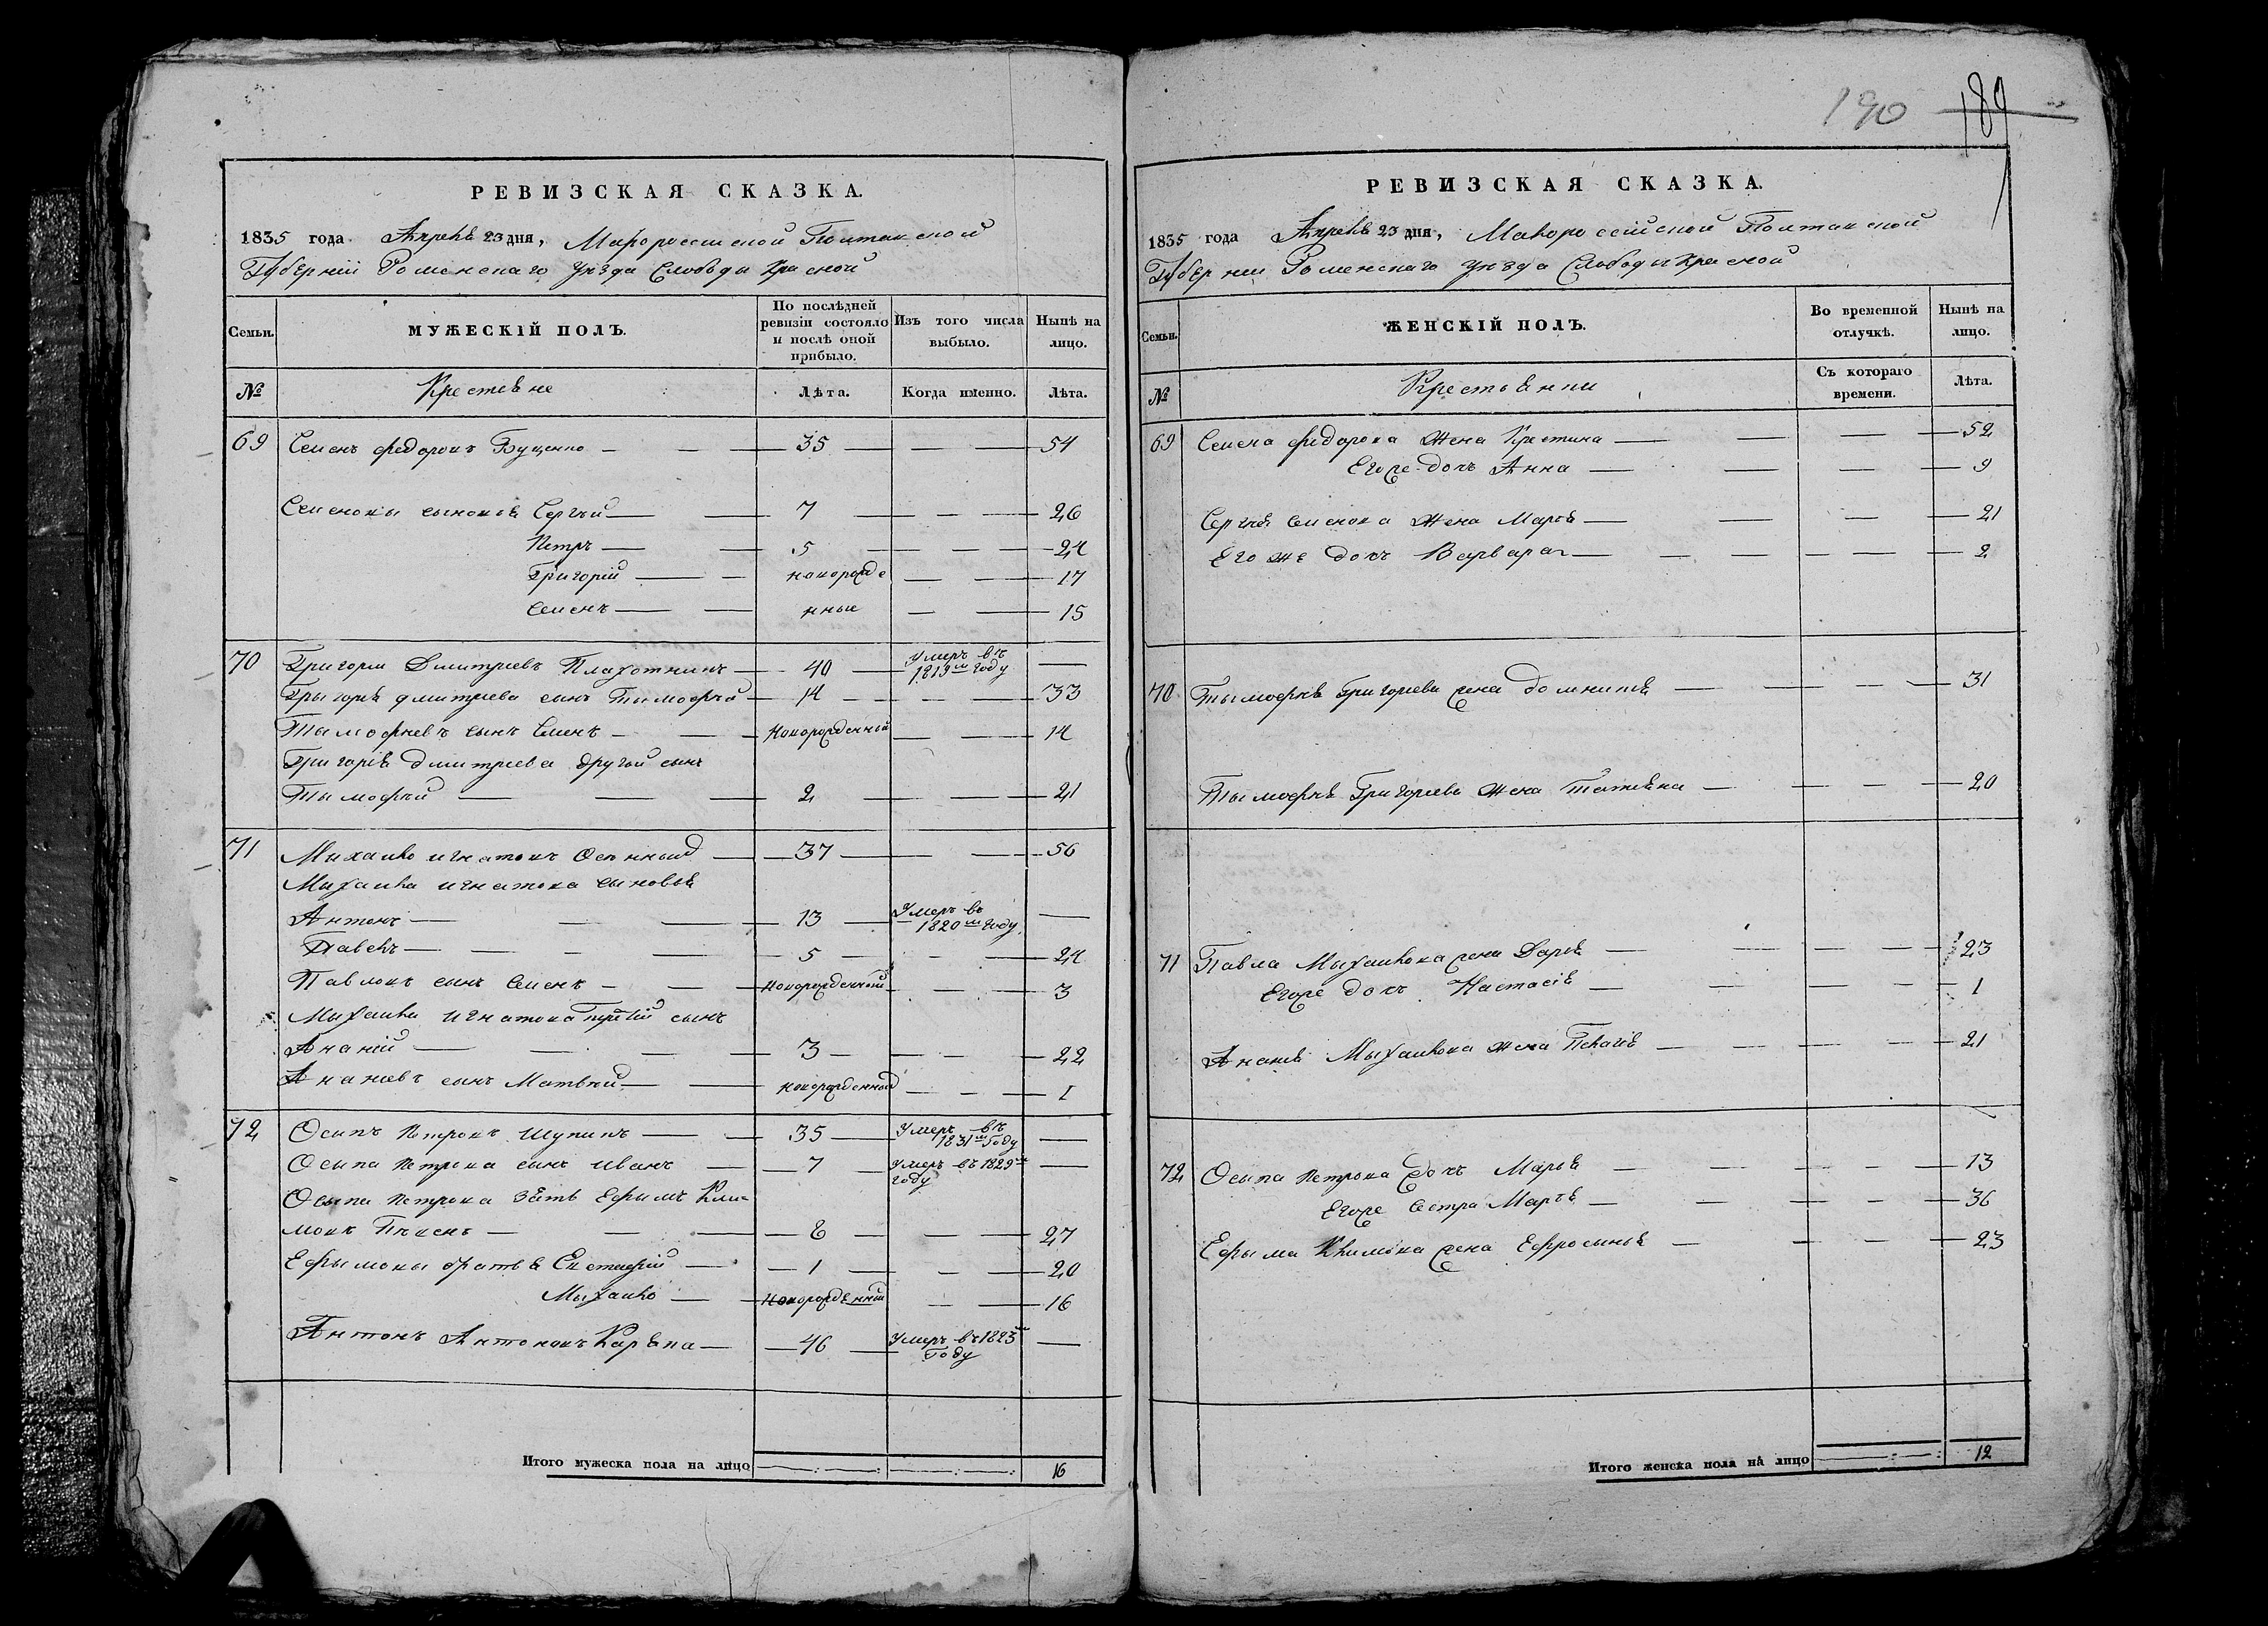 190 189
РЕВИЗСКАЯ СКАЗКА.
1835 года Апреля 23 дня, Малороссийской Полтавской
Губерніи Роменскаго уѣзда Слободы Красной
Семьи. МУЖЕСКІЙ ПОЛЪ. По послѣдней ревизіи состояло и послѣ оной прибыло. Изъ того числа выбыло. Нынѣ на лицо.
№ Крестьяне Лѣта. Когда именно. Лѣта.
69 Семенъ Федоровъ Буценко 35 54
Семеновы сыновья Сергѣй 7 26
Петръ 5 24
Григорій новорожде 17
Семенъ нные 15
70 Григорій Дмитріевъ Плахотникъ 40 Умеръ въ 1819м году
Григорія Дмитріева сынъ Тымофѣй 14 33
Тымофѣевъ сынъ Семенъ Новорожденный 14
Григорія Дмитріева другой сынъ
Тымофѣй 2 21
71 Михайло Игнатовъ 37 56
Михайла Игнатова сыновья
Антонъ 13 Умеръ въ 1820м году
Павелъ 5 24
Павловъ сынъ Семенъ Новорожденный 3
Михайла Игнатова третій сынъ
Ананій 3 22
Ананіевъ сынъ Матвѣй новорожденный 1
72 Осипъ Петровъ Шупикъ 35 Умеръ въ 1831м году
Осипа Петрова сынъ Иванъ 7 Умеръ въ 1829м году
Осипа Петрова зять Ефымъ Кли=
мовъ 8 27
Ефымовы братья Евстафій 1 20
Михайло Новорожденный 16
Антонъ Антоновъ Каряка 46 Умеръ въ 1823м году
Итого мужеска пола на лицо 16
РЕВИЗСКАЯ СКАЗКА.
1835 года Апреля 23 дня, Малороссійской Полтавской
Губерніи Роменскаго уѣзда Слободы Красной
Семьи. ЖЕНСКІЙ ПОЛЪ. Во временной отлучкѣ. Нынѣ на лицо.
№ Крестьянки Съ котораго времени. Лѣта.
69 Семена Федорова жена Крестина 52
Егоже дочь Анна 9
Сергѣя Семенова жена Марья 21
Его же дочь Варвара 2
70 Тымофѣя Григорьева жена Домникія 31
Тымофѣя Григорьева жена Татьяна 20
71 Павла Михайлова жена Дарья 23
Егоже дочь Настасія 1
Ананія Михайлова жена Пелагія 21
72 Осипа Петрова дочь Марья 13
Егоже сестра Марья 36
Ефыма Климова жена Ефросынья 23
Итого женска пола на лицо 12